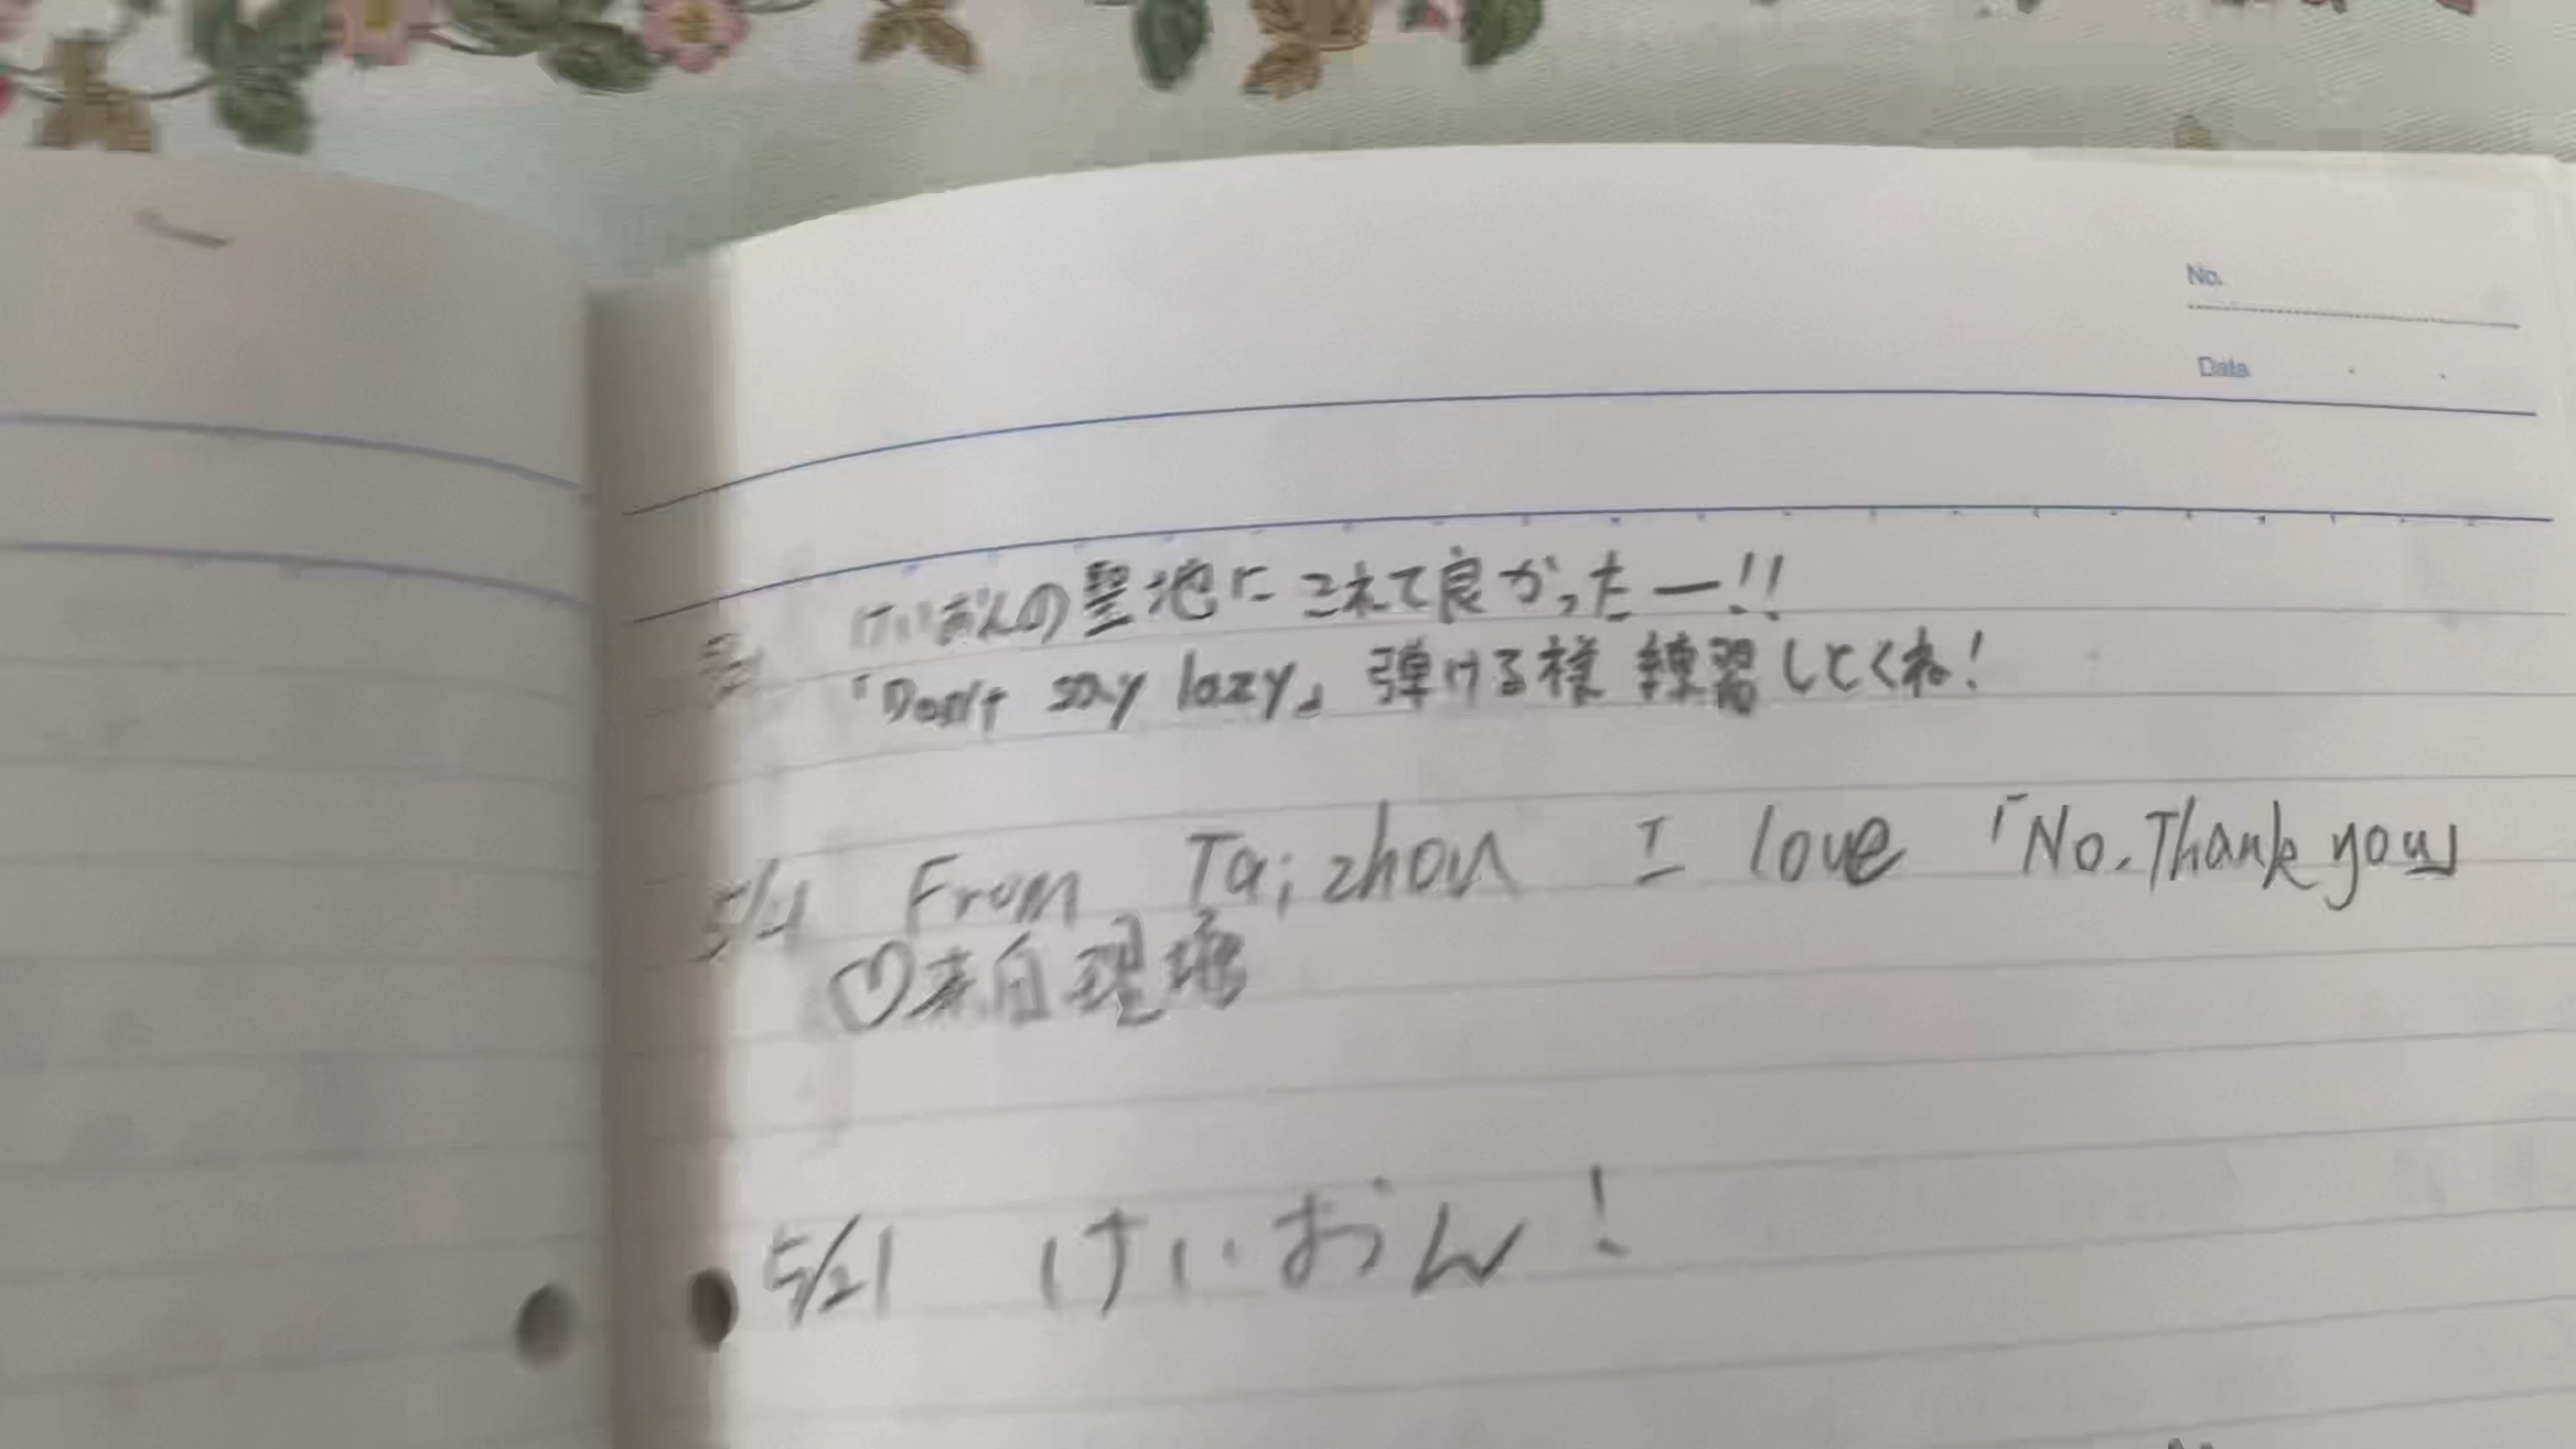 No.
Date
けいおんの聖地に これて良かったー!!
「Don't say lazy」 弾ける様 練習しとくね!
5/4 From Taizhou I love 「No, Thank you」
♡来自理塘
5/21 けいおん!